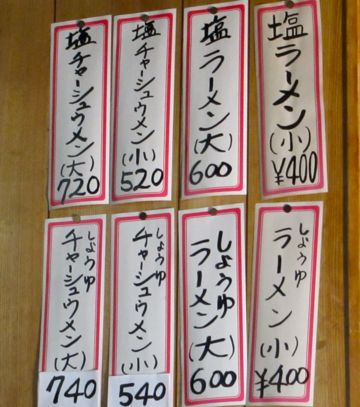 塩ラーメン(小)
¥400
塩ラーメン(大)
600
塩チャーシュウメン(小)
520
塩チャーシュウメン(大)
720
しょうゆラーメン(小)
¥400
しょうゆラーメン(大)
600
しょうゆチャーシュウメン(小)
540
しょうゆチャーシュウメン(大)
740